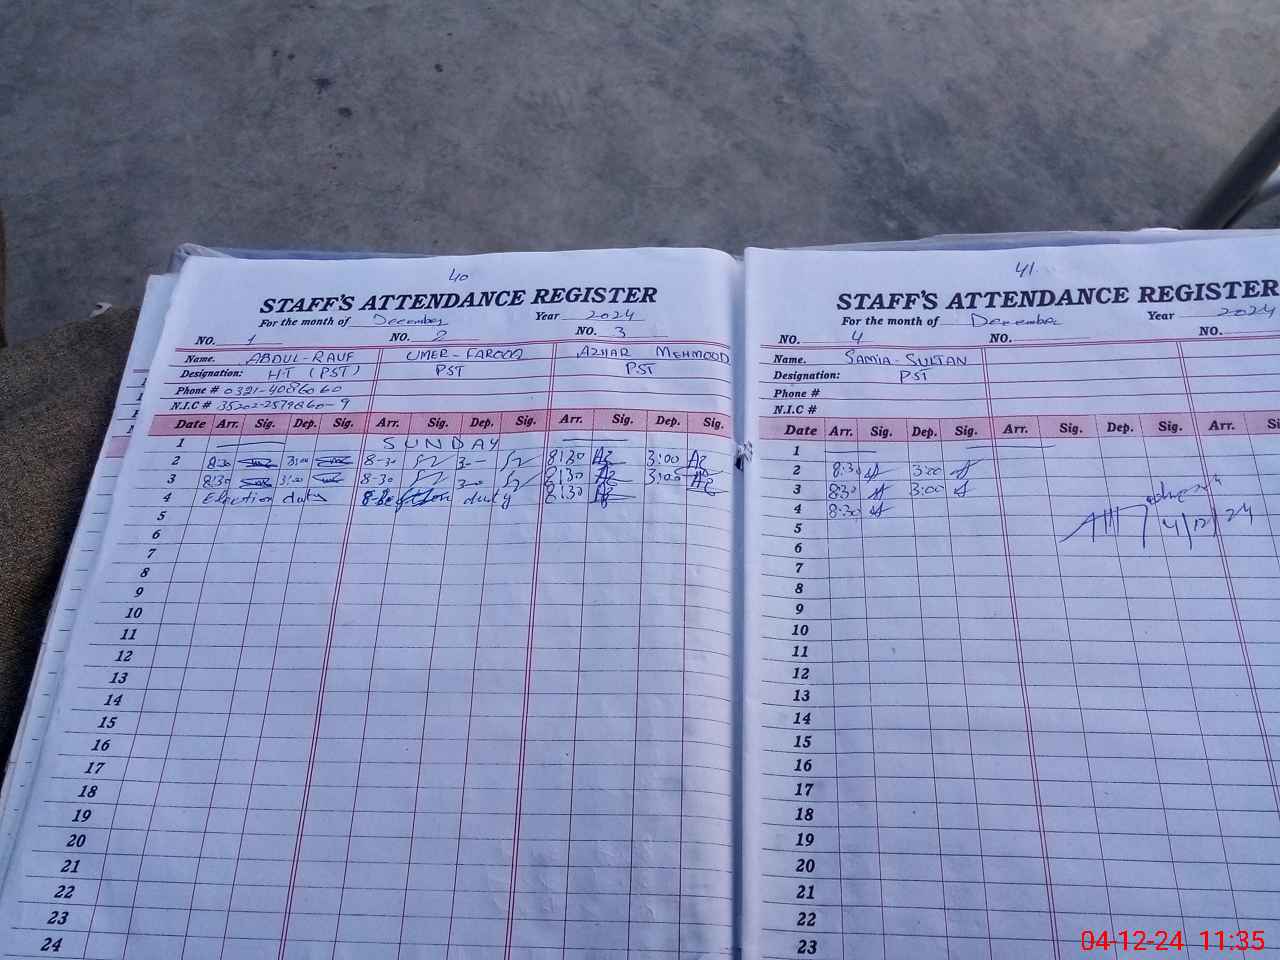 40
STAFF'S ATTENDANCE REGISTER
For the month of December Year 2024
NO. 1 NO. 2 NO. 3
Name. ABDUL-RAUF UMER-FAROOQ AZHAR MEHMOOD
Designation: HT (PST) PST PST
Phone # 0321-4086060
N.I.C #
Date Arr. Sig. Dep. Sig. Arr. Sig. Dep. Sig. Arr. Sig. Dep. Sig.
1 SUNDAY
2 8:30 3:00 8-30 3:00 8:30 Az 3:00 Az
3 8:30 3:00 8-30 8:30 Az 3:00 Az
4 Election duty duty 8:30 Az
5
6
7
8
9
10
11
12
13
14
15
16
17
18
19
20
21
22
23
24
41
STAFF'S ATTENDANCE REGISTER
For the month of December Year 2024
NO. 4 NO. NO.
Name. SAMIA-SULTAN
Designation: PST
Phone #
N.I.C #
Date Arr. Sig. Dep. Sig. Arr. Sig. Dep. Sig. Arr. Sig.
1
2 8:30 3:00
3 8:30 3:00
4 8:30
5 4/12/24
6
7
8
9
10
11
12
13
14
15
16
17
18
19
20
21
22
23
04-12-24 11:35